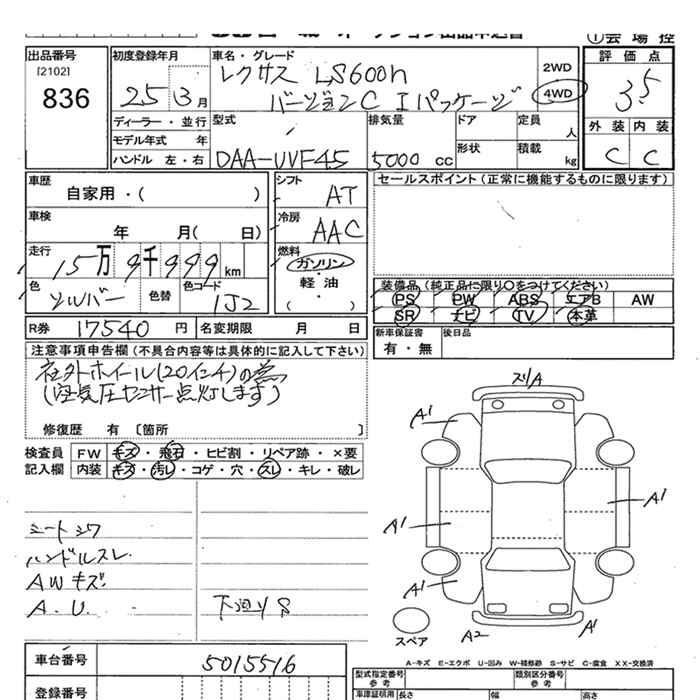 出品番号
[2102]
836
初度登録年月
25 3月
ディーラー・並行
モデル年式 年
ハンドル 左・右
車名・グレード
レクサス LS600h
バージョンC Iパッケージ
2WD
4WD
評価点
3.5
型式
DAA-UVF45
排気量
5000 cc
ドア
形状
定員
人
積載
kg
外装 内装
C C
車歴
自家用・( )
車検
年 月( 日)
走行
15万9千999km
色
シルバー
色替
色コード
1J2
シフト
AT
冷房
AAC
燃料
ガソリン
軽油
( )
セールスポイント (正常に機能するものに限ります)
装備品 (純正品に限り○をつけてください)
PS PW ABS エアB AW
SR ナビ TV 本革
R券 17540 円 名変期限 月 日
新車保証書
有・無
後日品
注意事項申告欄 (不具合内容等は具体的に記入して下さい)
社外ホイール(20インチ)の為
(空気圧センサー点灯します)
修復歴 有 〔箇所 〕
検査員
記入欄
FW キズ・飛石・ヒビ割・リペア跡・×要
内装 キズ・汚レ・コゲ・穴・スレ・キレ・破レ
シートシワ
ハンドルスレ
AWキズ
A.U.
下廻りS
スリA
A1
A1
A1
A1
A2
A1
スペア
A-キズ E-エクボ U-凹み W-補修跡 S-サビ C-腐食 XX-交換済
車台番号 5015516
登録番号
型式指定番号
参考
類別区分番号
参考
車庫証明用 長さ 幅 高さ